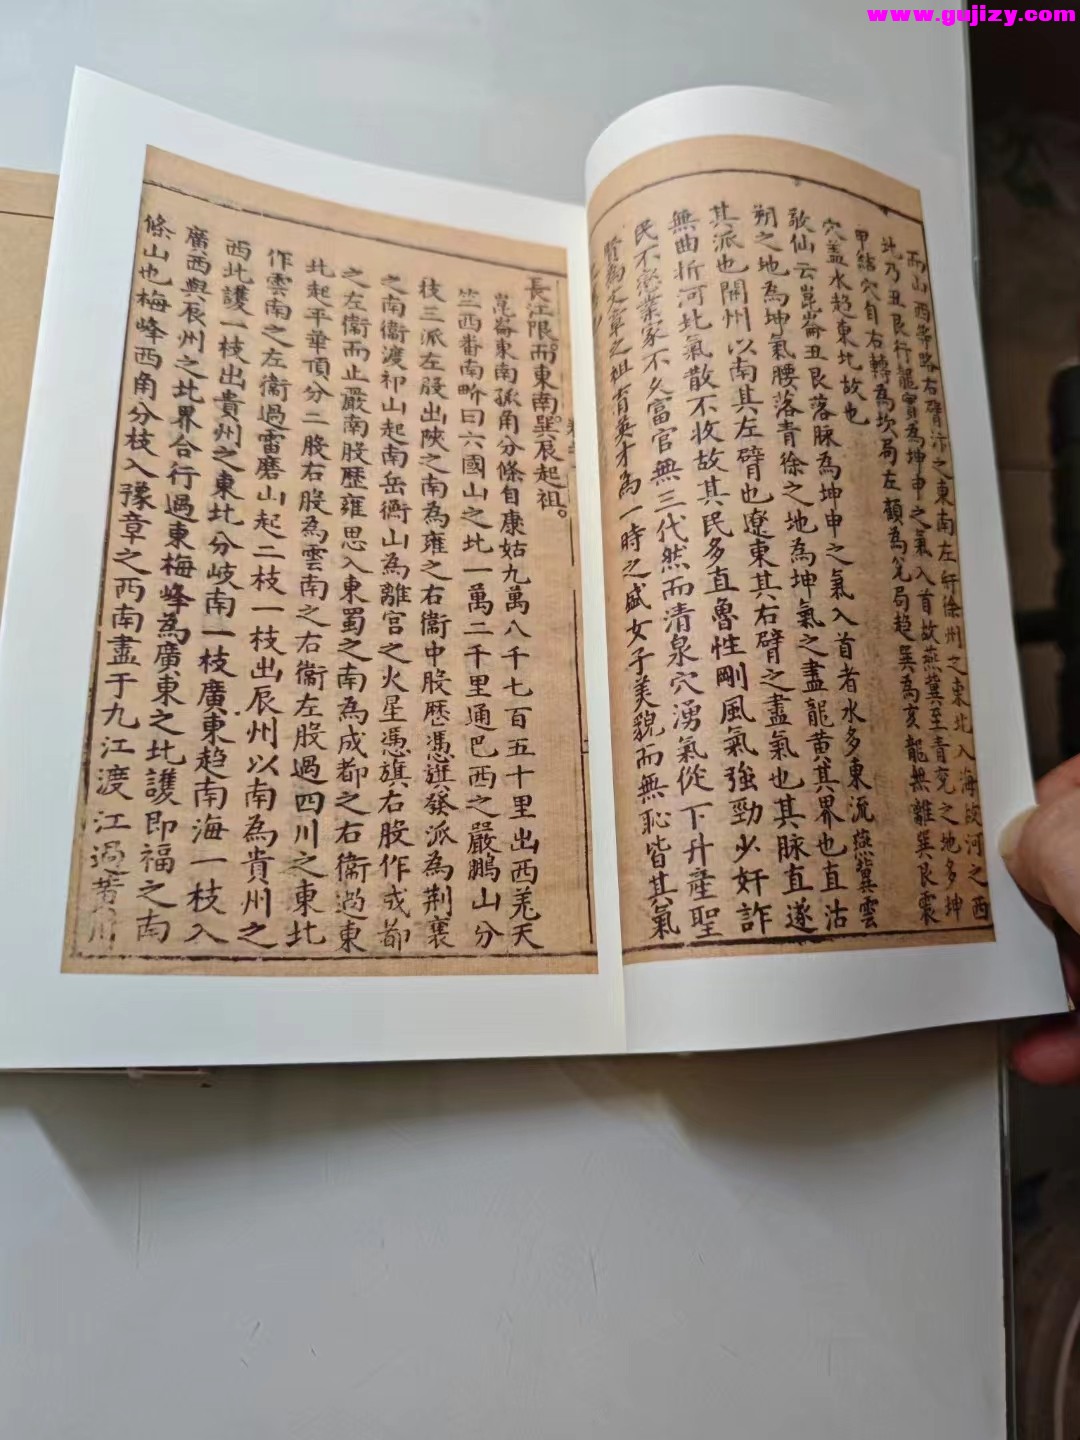 www.gujizy.com
而山西等路右臂汴之東南左轩徐州之東北入海故河之西
北乃丑艮行龍實為坤申之氣入首故燕冀至青兗之地多坤
甲結穴自右轉為坎局左顛為兌局趨巽為亥龍無離巽艮震
穴盖水趋東北故也
敬仙云崑崙丑艮落脉為坤申之氣入首者水多東流燕冀雲
朔之地為坤氣腰落青徐之地為坤氣之盡龍黄其界也直沽
其派也開州以南其左臂也遼東其右臂之盡氣也其脉直遂
無曲折河北氣散不收故其民多直魯性剛風氣強勁少奸詐
民不戀業家不久富官無三代然而清泉穴湧氣從下升產聖
賢為文章之祖育英才為一時之盛女子美貌而無恥皆其氣
長江限而東南巽辰起祖
崑崙東南孫角分條自康姑九萬八千七百五十里出西羗天
竺西番南畍曰六國山之北一萬二千里通巴西之嚴鵬山分
枝三派左股出陝之南為雍之右衞中股歷憑旗發派為荆襄
之南衞渡祁山起南岳衡山為離宮之火星憑旗右股作成都
之左衞而止嚴南股歷雍思入東蜀之南為成都之右衞過東
北起平華頂分二股右股為雲南之右衞左股過四川之東北
作雲南之左衞過雷磨山起二枝一枝出辰州以南為貴州之
西北護一枝出貴州之東北分岐南一枝廣東趋南海一枝入
廣西與辰州之北界合行過東梅峰為廣東之北護即福之南
條山也梅峰西角分枝入豫章之西南盡于九江渡江過